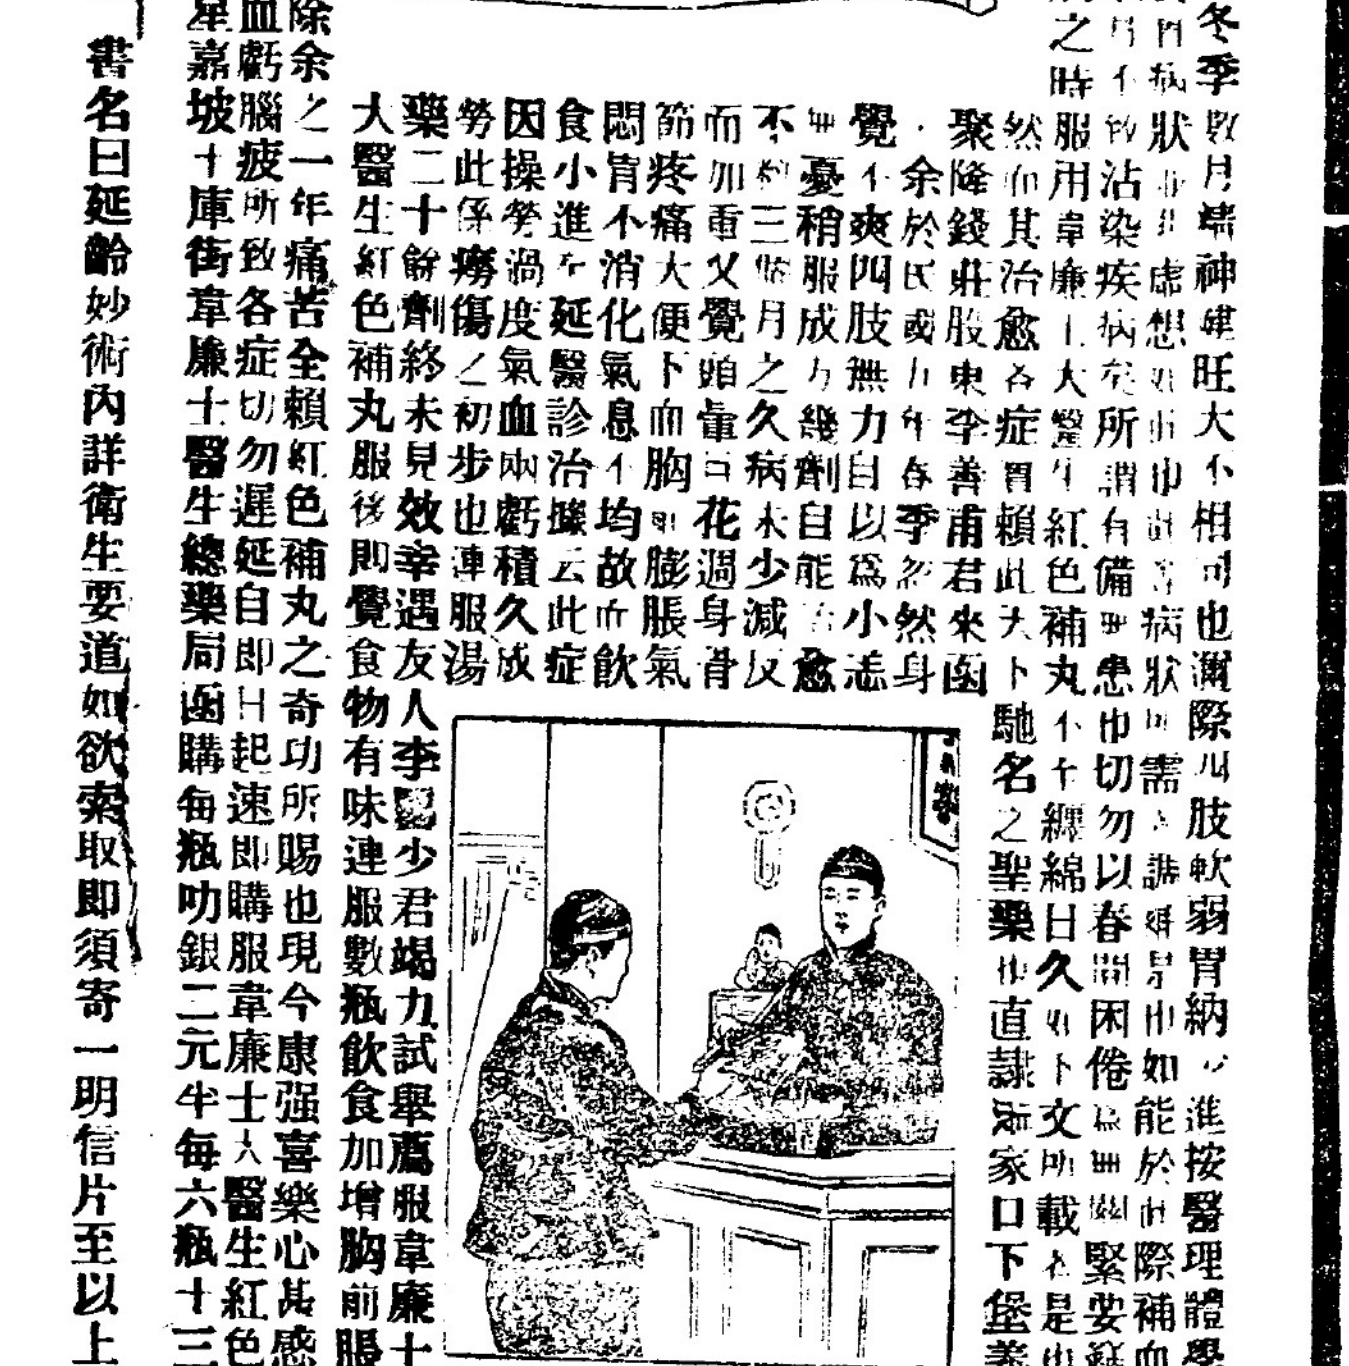 冬季數月精神健旺大不相同也邇際四肢軟弱胃納少進按醫理體學
病狀並非虛想如病狀所需如能於此際補血
不致沾染疾病矣所謂有備無患也切勿以春間困倦為無關緊要
之時服用韋廉士大醫生紅色補丸不纏綿日久如下文所載者是也
然而其治愈各症實賴此天下馳名之聖藥也直隸張家口下堡善
聚隆錢莊股東李善甫君來函
余於民國九年春季忽然身
覺不爽四肢無力自以為小恙
無憂稍服成方幾劑自能治愈
不料三個月之久病未少減反
而加重又覺頭暈目花過身骨
節疼痛大便下血胸部膨脹氣
悶胃不消化氣息不均故而飲
食小進至延醫診治據云此症
因操勞過度氣血兩虧積久成
勞此係癆傷之初步也連服湯
藥二十餘劑終未見效幸遇友人李少君竭力試舉薦服韋廉士
大醫生紅色補丸服後即覺食物有味連服數瓶飲食加增胸前脹
除余之一年痛苦全賴紅色補丸之奇功所賜也現今康强喜樂心甚感
血虧腦疲所致各症切勿遲延自即日起速即購服韋廉士大醫生紅色
星嘉坡十庫街韋廉士醫生總藥局函購每瓶叻銀二元半每六瓶十三
書名曰延齡妙術內詳衛生要道如欲索取即須寄一明信片至以上